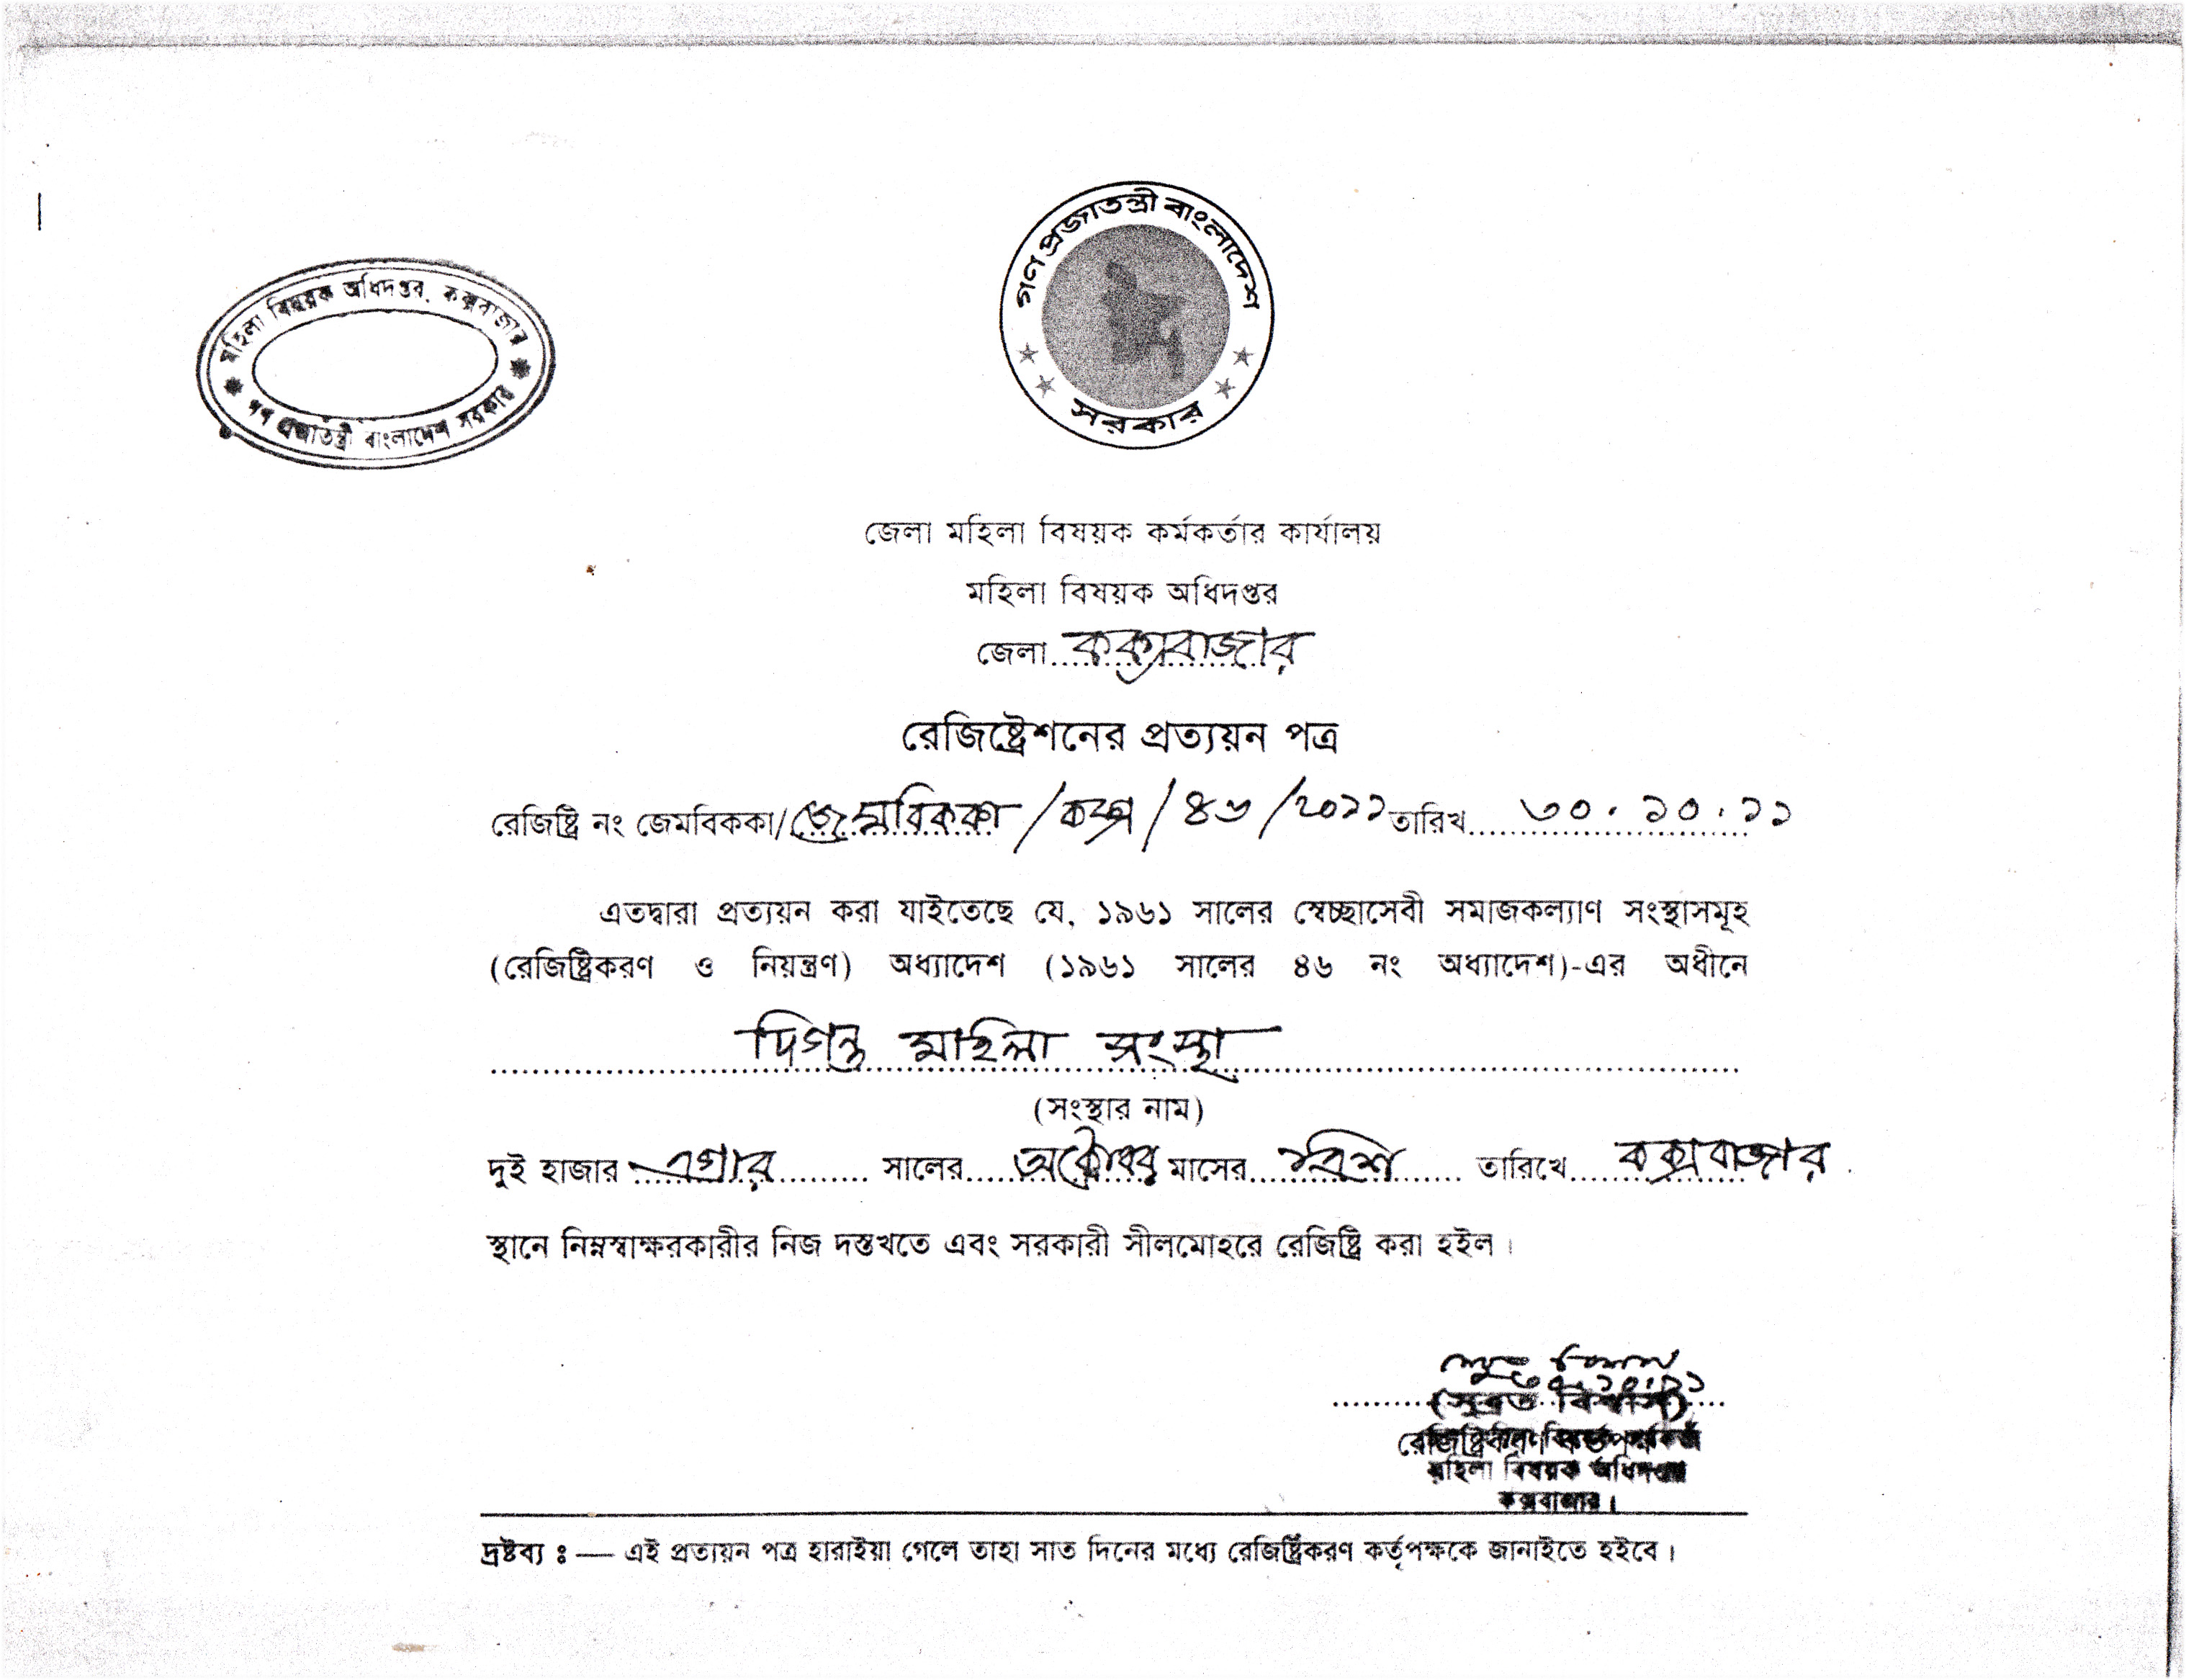 গণপ্রজাতন্ত্রী বাংলাদেশ
সরকার
মহিলা বিষয়ক অধিদপ্তর, কক্সবাজার
গণ প্রজাতন্ত্রী বাংলাদেশ সরকার
জেলা মহিলা বিষয়ক কর্মকর্তার কার্যালয়
মহিলা বিষয়ক অধিদপ্তর
জেলা কক্সবাজার
রেজিষ্ট্রেশনের প্রত্যয়ন পত্র
রেজিষ্ট্রি নং জেমবিককা/জেমবিককা/কক্স/৪৬/২০১১ তারিখ ৩০.১০.১১
এতদ্বারা প্রত্যয়ন করা যাইতেছে যে, ১৯৬১ সালের স্বেচ্ছাসেবী সমাজকল্যাণ সংস্থাসমূহ
(রেজিষ্ট্রিকরণ ও নিয়ন্ত্রণ) অধ্যাদেশ (১৯৬১ সালের ৪৬ নং অধ্যাদেশ)-এর অধীনে
দিগন্ত মহিলা সংস্থা
(সংস্থার নাম)
দুই হাজার এগার সালের অক্টোবর মাসের ত্রিশ তারিখে কক্সবাজার
স্থানে নিম্নস্বাক্ষরকারীর নিজ দস্তখতে এবং সরকারী সীলমোহরে রেজিষ্ট্রি করা হইল।
৩০.১০.১১
(সুব্রত বিশ্বাস)
রেজিষ্ট্রিকরণ কর্তৃপক্ষ
মহিলা বিষয়ক অধিদপ্তর
কক্সবাজার।
দ্রষ্টব্য ঃ— এই প্রত্যয়ন পত্র হারাইয়া গেলে তাহা সাত দিনের মধ্যে রেজিষ্ট্রিকরণ কর্তৃপক্ষকে জানাইতে হইবে।